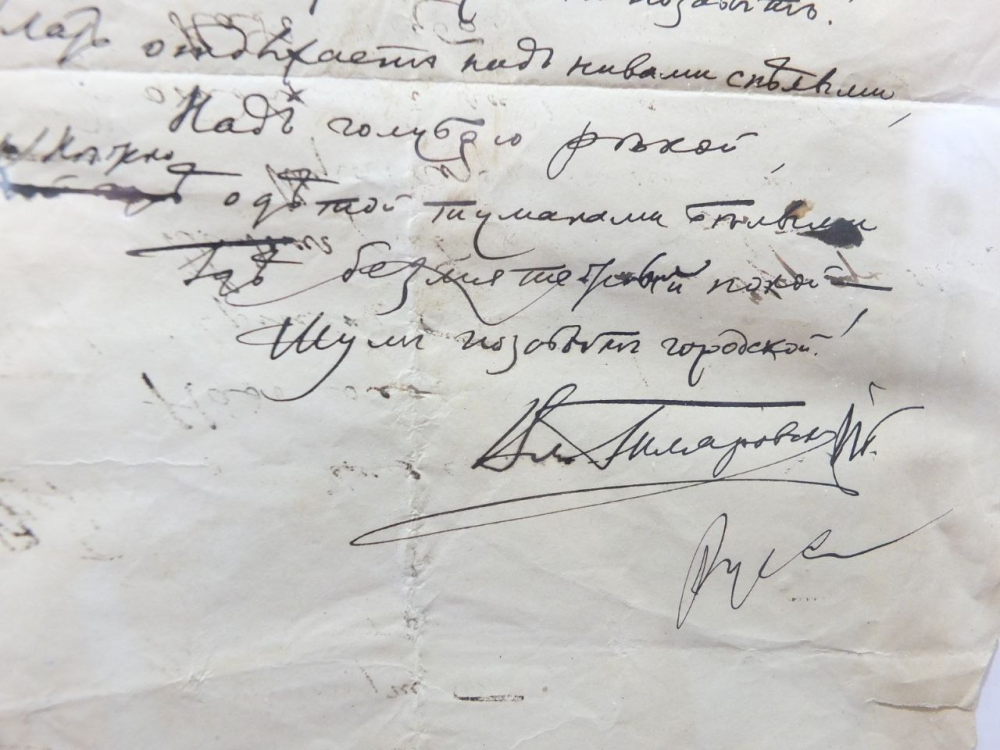 позабыть!
отдыхаетъ надъ нивами спѣлыми
Надъ голубою рѣкой,
Нѣжно
одѣтой туманами бѣлыми
Гдѣ безмятежный покой
Шумъ позабыть городской!
Вл. Гиляровскій